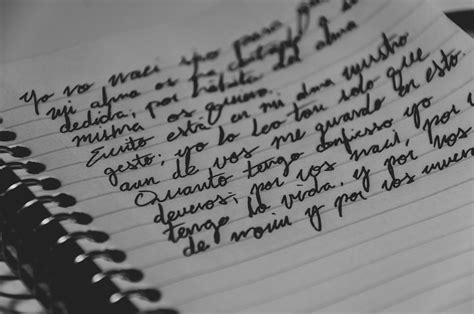 Yo no naci sino para que
mi alma os ha cortado a s
dedida, por hábito del alma
misma os quiero.
Escrito está en mi alma vuestro
gesto; yo lo leo tan solo que
aun de vos me guardo en esto.
Quanto tengo confieso yo
deveros; por vos naci, por
tengo la vida, y por vos
de morir y por vos muero